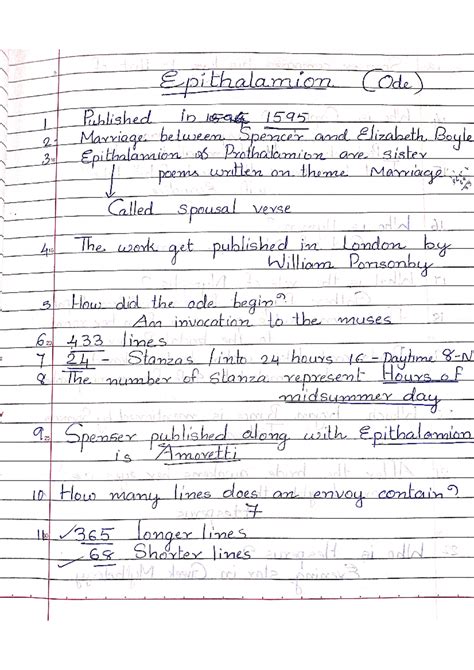 Epithalamion (Ode)
1 Published in 1595
2- Marriage between Spencer and Elizabeth Boyle
3- Epithalamion & Prothalamion are sister
poems written on theme Marriage
Called spousal verse
4- The work get published in London by
William Ponsonby
5 How did the ode begin?
An invocation to the muses
6- 433 lines
7 24 - Stanzas (into 24 hours 16 - Daytime 8-N
8 The number of Stanza represent Hours of
midsummer day
9- Spenser published along with Epithalamion
is Amoretti
10 How many lines does an envoy contain?
7
11- ✓365 longer lines
✓68 Shorter lines